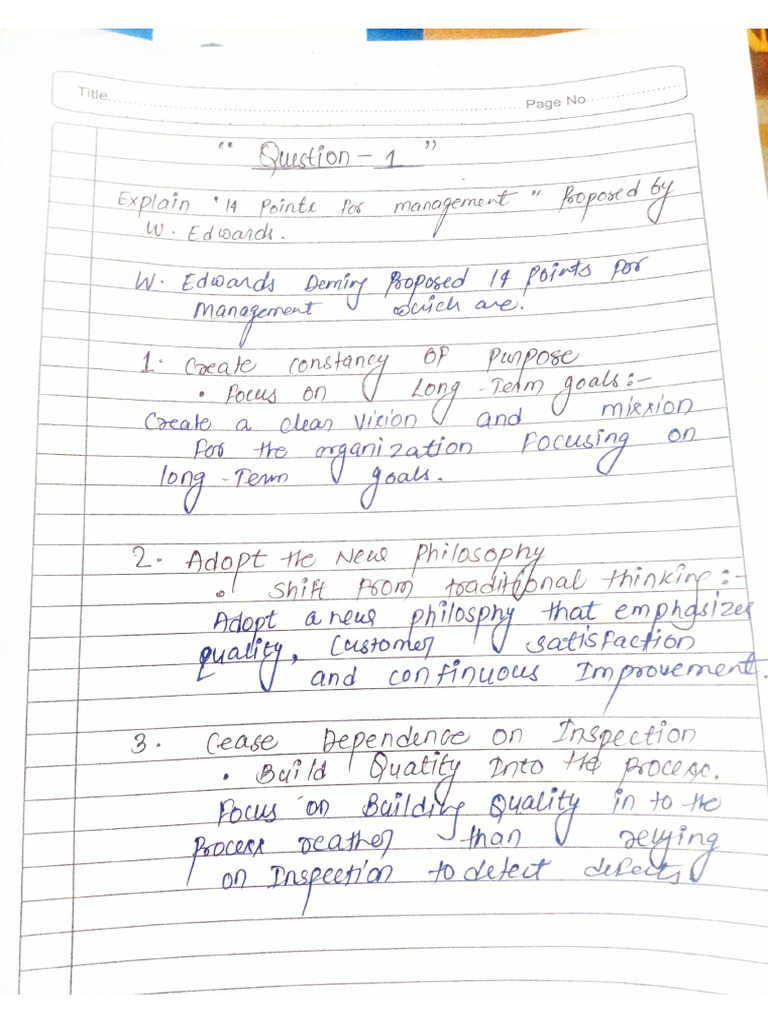 Title
Page No
"Question - 1"
Explain "14 Points for management" Proposed by
W. Edwards.
W. Edwards Deming Proposed 14 points for
Management which are.
1. Create constancy OF Purpose
• Focus on Long-Term goals:-
Create a clear vision and mission
for the organization Focusing on
long-Term goals.
2. Adopt the New Philosophy
• Shift From traditional thinking:-
Adopt a new philosphy that emphasizes
quality, Customer satisfaction
and continuous Improvement.
3. Cease Dependence on Inspection
• Build Quality Into the process.
Focus on Building Quality in to the
process reather than relying
on Inspection to detect defects